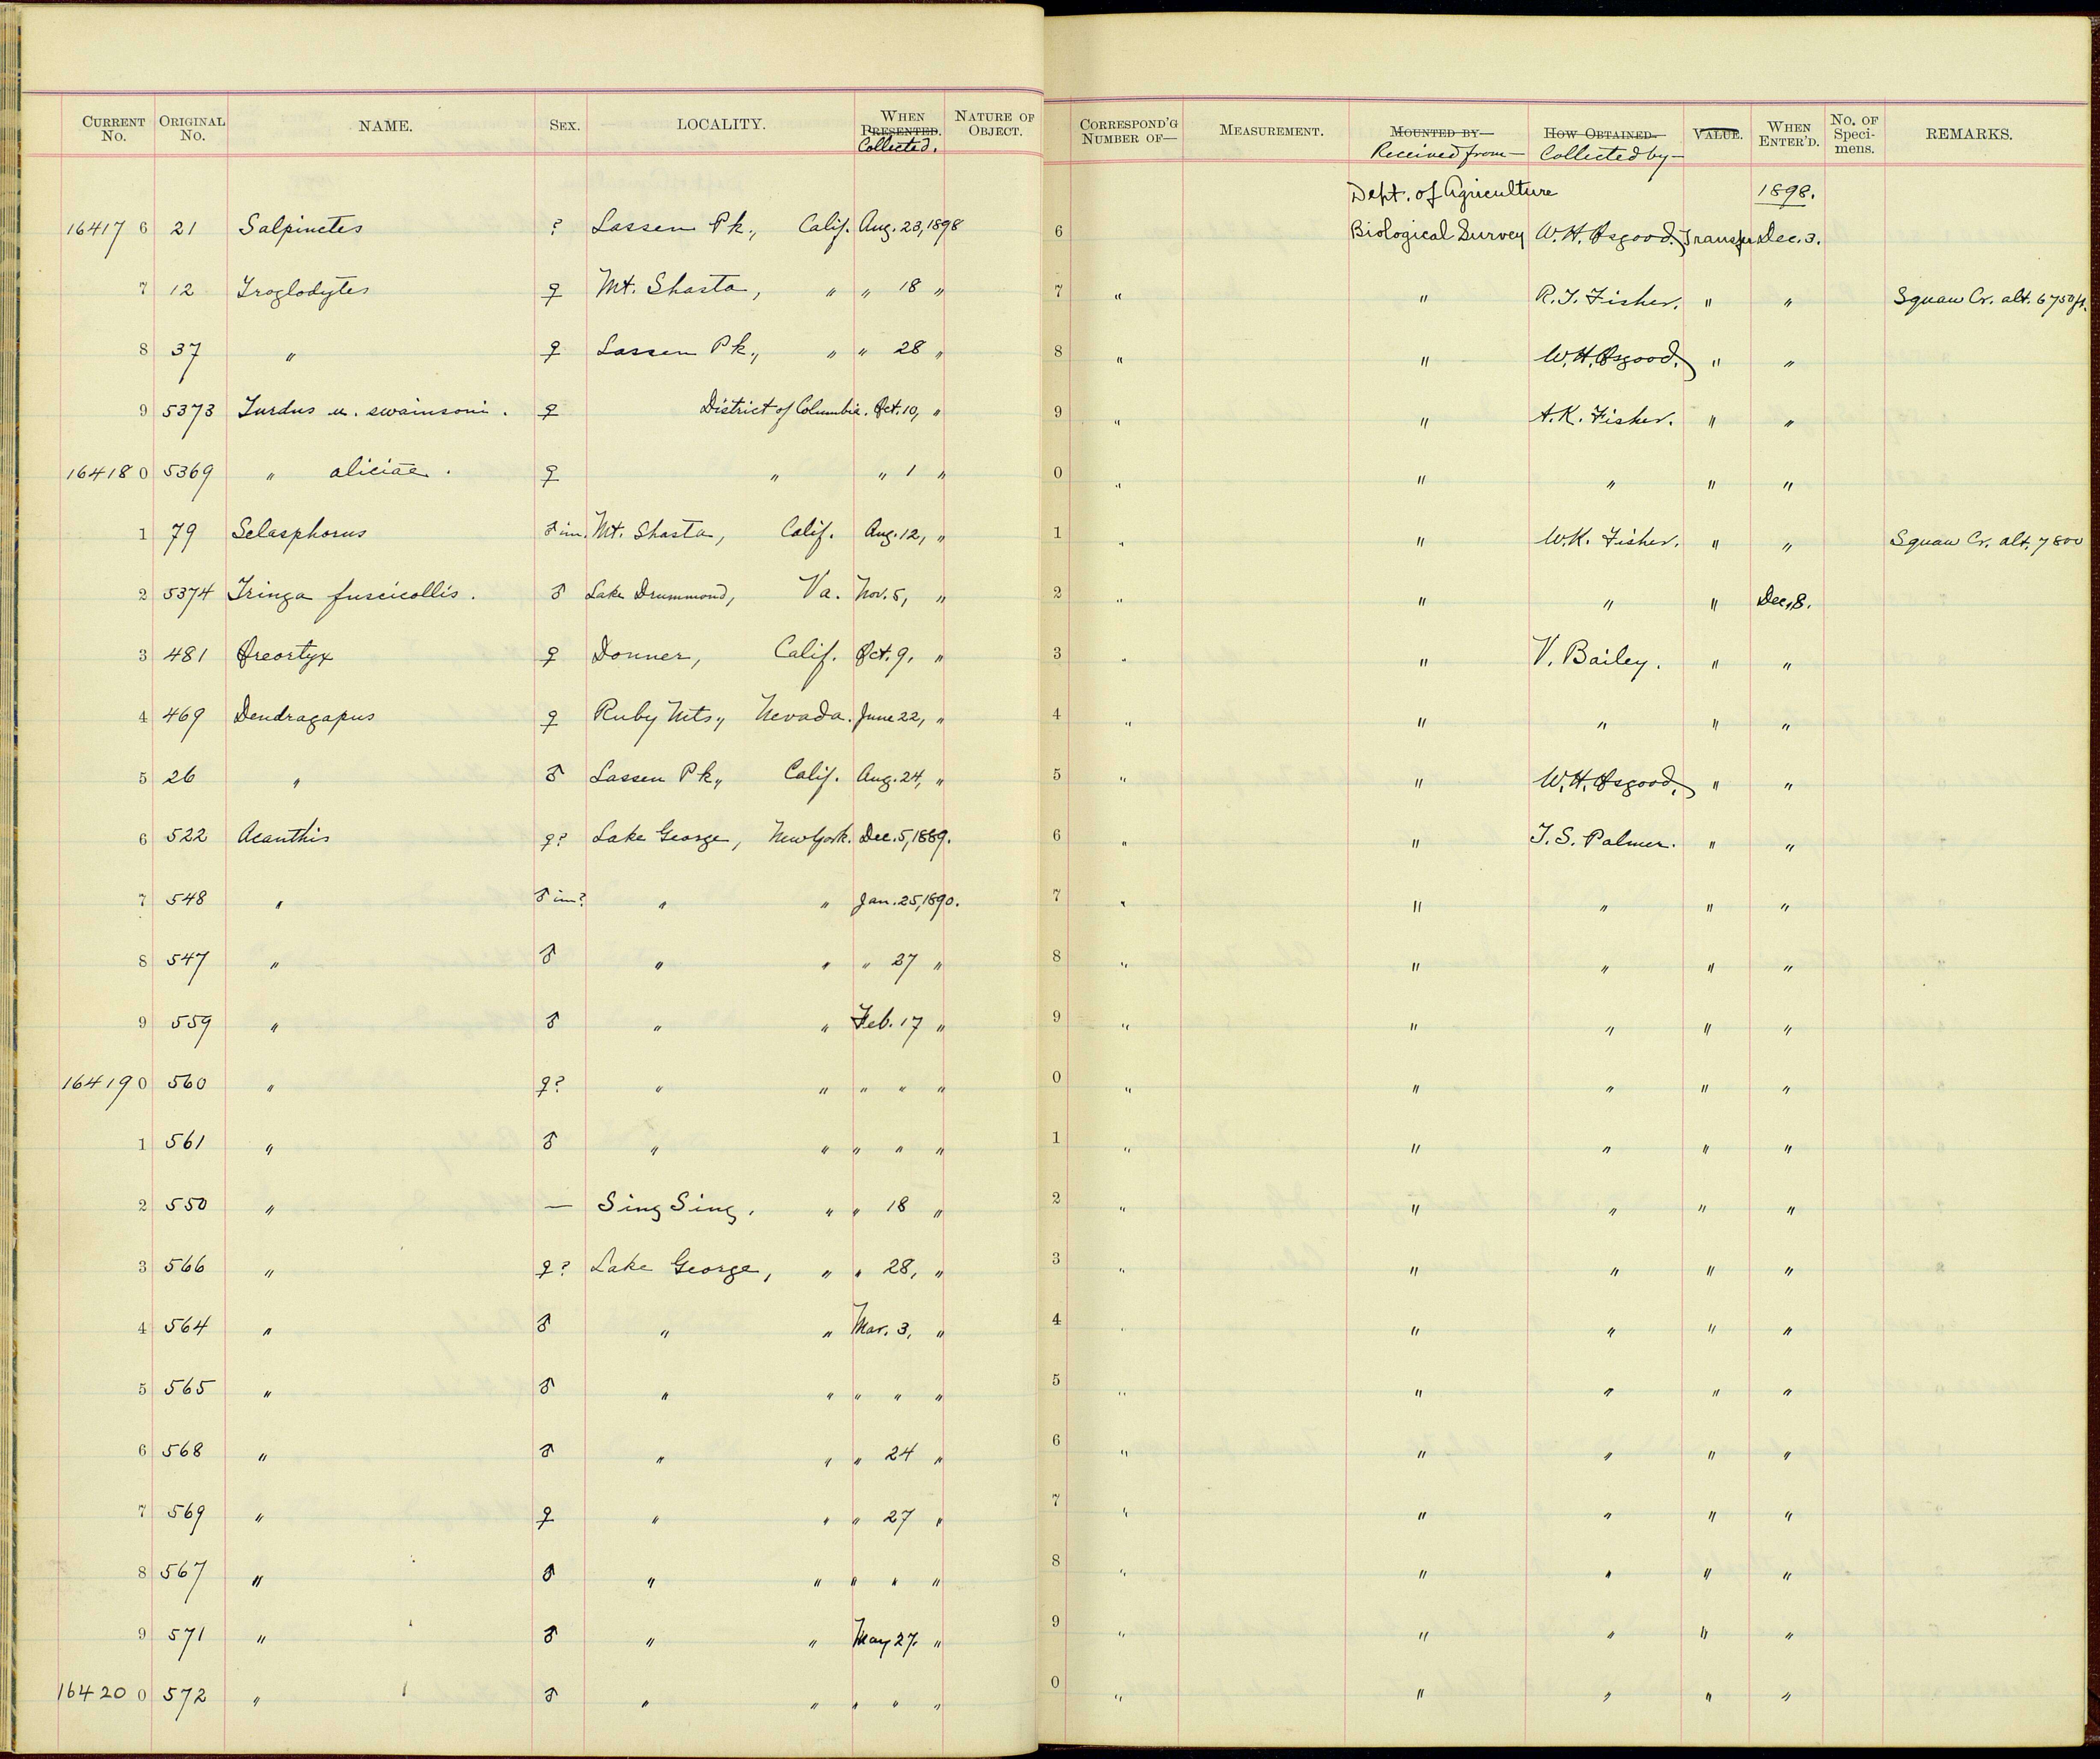 CURRENT No. ORIGINAL No. NAME. SEX. LOCALITY. WHEN PRESENTED. Collected. NATURE OF OBJECT. CORRESPOND'G NUMBER OF— MEASUREMENT. MOUNTED BY— Received from— HOW OBTAINED. Collected by— VALUE. WHEN ENTER'D. No. OF Speci-mens. REMARKS.
Dept. of Agriculture 1898.
16417 6 21 Salpinctes ? Lassen Pk., Calif. Aug. 23, 1898 6 Biological Survey W.H. Osgood. Transfer Dec. 3.
7 12 Troglodytes ♀ Mt. Shasta, " " 18 " 7 " " R.T. Fisher. " " Squaw Cr. alt. 6750 ft.
8 37 " ♀ Lassen Pk., " " 28 " 8 " " W.H. Osgood. " "
9 5373 Turdus u. swainsoni. ♀ District of Columbia. Oct. 10, " 9 " " A.K. Fisher. " "
16418 0 5369 " aliciae. ♀ " " 1 " 0 " " " " "
1 79 Selasphorus ♂ im. Mt. Shasta, Calif. Aug. 12, " 1 " " W.K. Fisher. " " Squaw Cr. alt. 7800
2 5374 Tringa fuscicollis. ♂ Lake Drummond, Va. Nov. 5, " 2 " " " " Dec. 8.
3 481 Oreortyx ♀ Donner, Calif. Oct. 9, " 3 " " V. Bailey. " "
4 469 Dendragapus ♀ Ruby Mts., Nevada. June 22, " 4 " " " " "
5 26 " ♂ Lassen Pk., Calif. Aug. 24, " 5 " " W.H. Osgood. " "
6 522 Acanthis ♀? Lake George, New York. Dec. 5, 1889. 6 " " T.S. Palmer. " "
7 548 " ♂ im? " " Jan. 25, 1890. 7 " " " " "
8 547 " ♂ " " " 27 " 8 " " " " "
9 559 " ♂ " " Feb. 17 " 9 " " " " "
16419 0 560 " ♀? " " " " " 0 " " " " "
1 561 " ♂ " " " " " 1 " " " " "
2 550 " — Sing Sing, " " 18 " 2 " " " " "
3 566 " ♀? Lake George, " " 28, " 3 " " " " "
4 564 " ♂ " " Mar. 3, " 4 " " " " "
5 565 " ♂ " " " " " 5 " " " " "
6 568 " ♂ " " " 24 " 6 " " " " "
7 569 " ♀ " " " 27 " 7 " " " " "
8 567 " ♂ " " " " " 8 " " " " "
9 571 " ♂ " " May 27. " 9 " " " " "
16420 0 572 " ♂ " " " " " 0 " " " " "